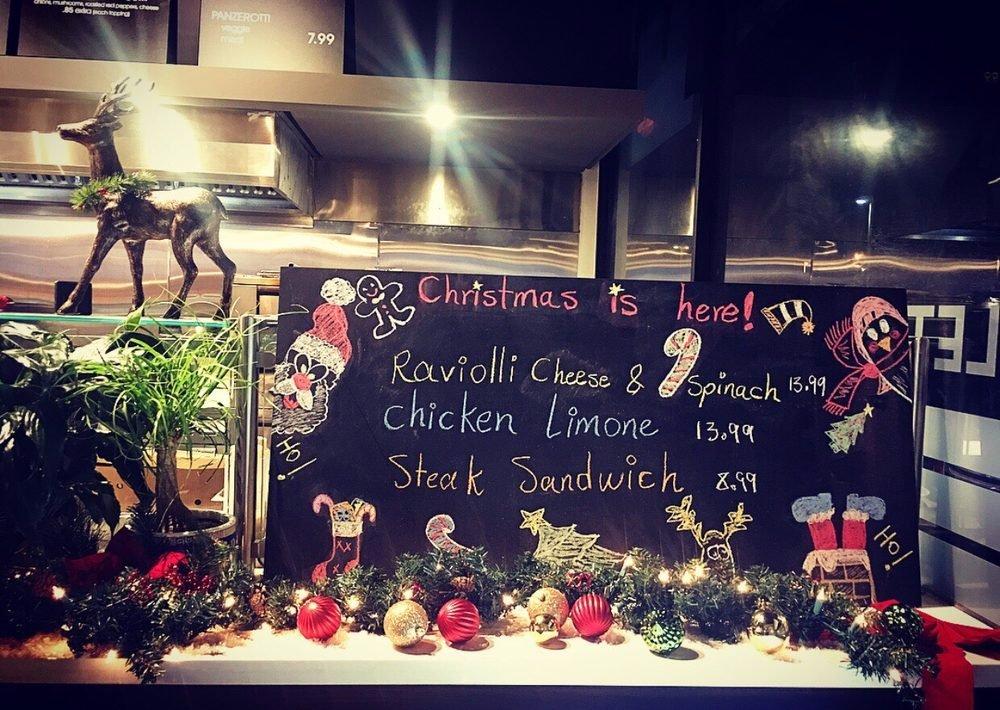 onions, mushrooms, roasted red peppers, cheese
.85 extra (each topping)
PANZEROTTI
veggie
meat
7.99
Christmas is here!
Raviolli Cheese & Spinach 13.99
Chicken Limone 13.99
Steak Sandwich 8.99
Ho!
Ho!